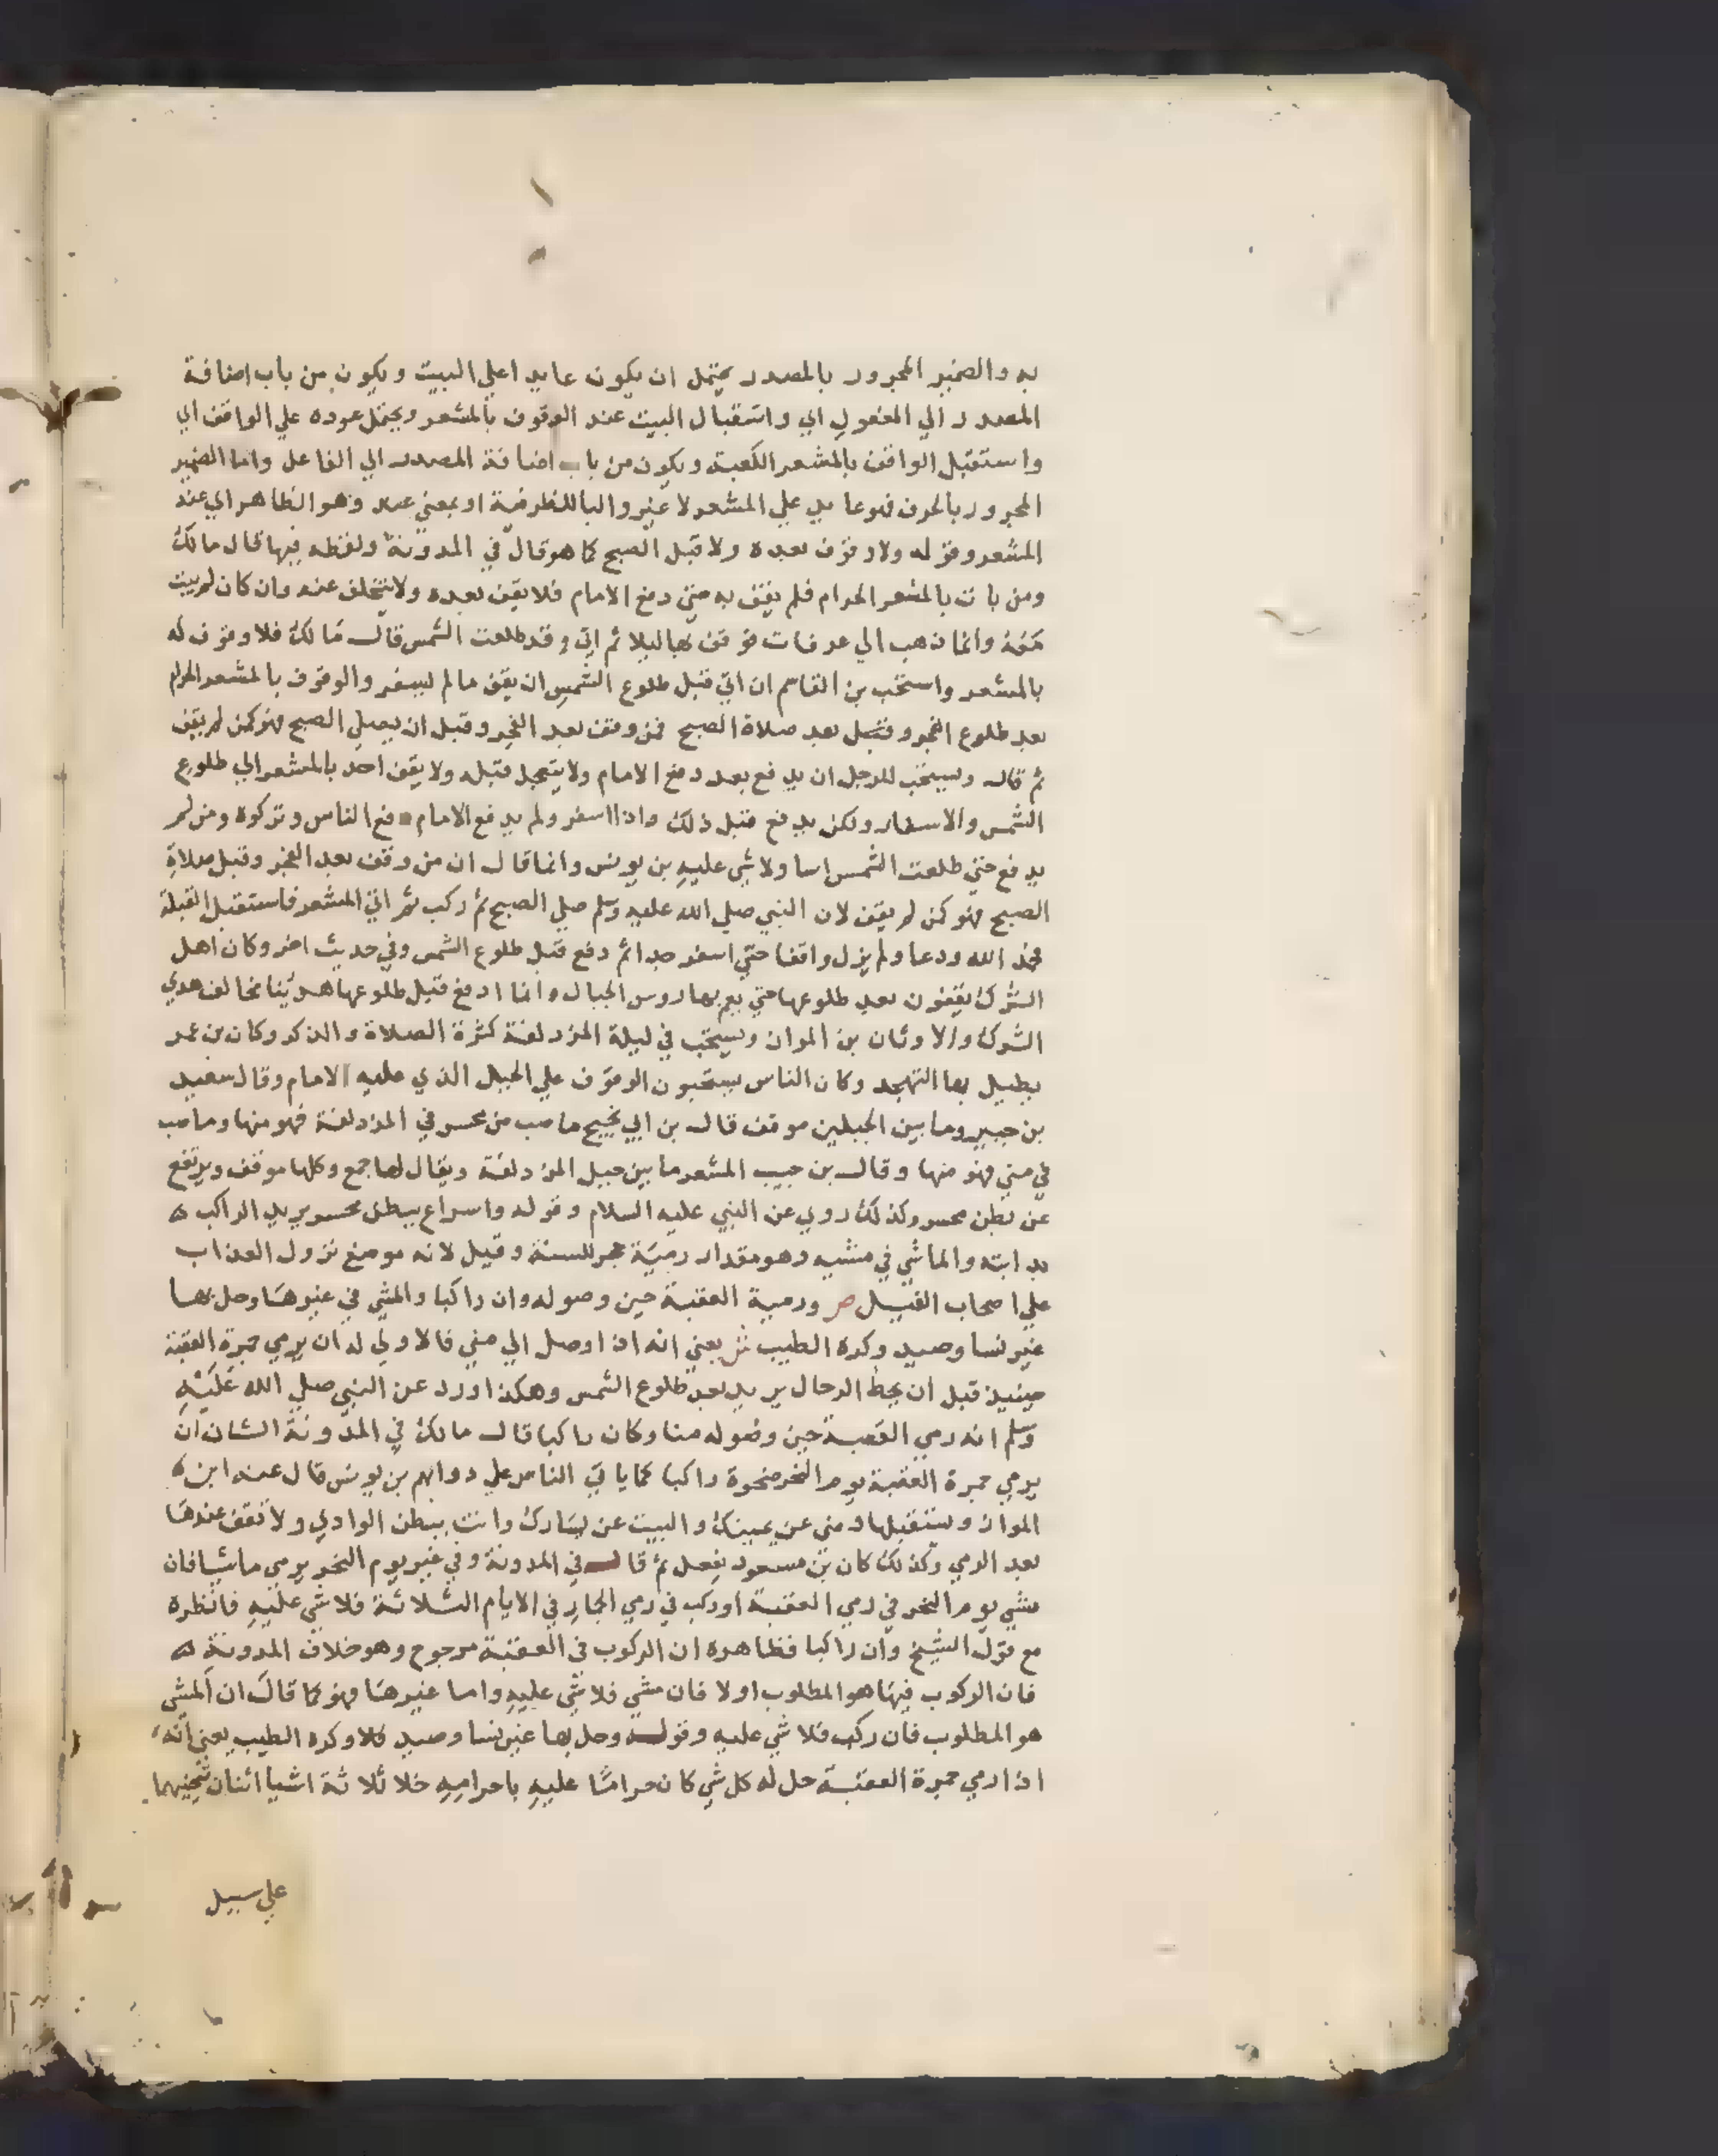 به والضمير المجرور بالمصدر يحتمل ان يكون عايدا علي البيت ويكون من باب اضافة
المصدر الي المفعول اي واستقبال البيت عند الوقوف بالمشعر ويحتمل عوده علي الواقف اي
واستقبل الواقف بالمشعر الكعبة ويكون من باب اضافة المصدر الي الفاعل واما الضمير
المجرور بالحرف فهو عايد علي المشعر لا غير والبا للظرفية او بمعني عند وهو الظاهر اي عند
المشعر وقوله ولا وقوف بعده ولا قبل الصبح كما هو قال في المدونة ولفظه فيها قال مالك
ومن بات بالمشعر الحرام فلم يقف به حتي دفع الامام فلا يقف بعده ولا يتخلف عنه وان كان لم يبت
معه وانما ذهب الي عرفات فوقف بها ليلا ثم اتي وقد طلعت الشمس قال مالك فلا وقوف له
بالمشعر واستحب بن القاسم ان اتي قبل طلوع الشمس ان يقف مالم يسفر والوقوف بالمشعر الحرام
بعد طلوع الفجر وقبل بعد صلاة الصبح فمن وقف بعد الفجر وقبل ان يصلي الصبح فهو كمن لم يقف
ثم قال ويستحب للرجل ان يدفع بعد دفع الامام ولا يتعجل قبله ولا يقف احد بالمشعر الي طلوع
الشمس والاسفار ولكن يدفع قبل ذلك واذا اسفر ولم يدفع الامام دفع الناس وتركوه ومن لم
يدفع حتي طلعت الشمس اسا ولا شي عليه بن يونس وانما قال ان من وقف بعد الفجر وقبل صلاة
الصبح فهو كمن لم يقف لان النبي صلي الله عليه وسلم صلي الصبح ثم ركب ثم اتي المشعر فاستقبل القبلة
فحمد الله ودعا ولم يزل واقفا حتي اسفر جدا ثم دفع قبل طلوع الشمس وفي حديث اخر وكان اهل
الشرك يقفون بعد طلوعها حتي يعم بها روس الجبال وانما ادفع قبل طلوعها هدينا مخالف هدي
الشرك والاوثان بن المواز ويستحب في ليلة المزدلفة كثرة الصلاة والذكر وكان بن عمر
يطيل بها التهجد وكان الناس يستحبون الوقوف علي الجبل الذي عليه الامام وقال سعيد
بن جبير وما بين الجبلين موقف قال بن ابي نجيح ما صب من محسر في المزدلفة فهو منها وما صب
في مني فهو منها وقال بن حبيب المشعر ما بين جبل المزدلفة ويقال لها جمع وكلها موقف ويرتفع
عن بطن محسر وكذلك روي عن النبي عليه السلام وقوله واسراع ببطن محسر يريد الراكب
بدابته والماشي في مشيه وهو مقدار رمية حجر للسنة وقيل لانه موضع نزول العذاب
علي اصحاب الفيل ص ورميه العقبة حين وصوله وان راكبا والمشي في غيرها وحل بها
غير نسا وصيد وكره الطيب ش يعني انه اذا وصل الي مني فالاولي له ان يرمي جمرة العقبة
حينيذ قبل ان يحط الرحال يريد بعد طلوع الشمس وهكذا ورد عن النبي صلي الله عليه
وسلم انه رمي العقبة حين وصوله منا وكان راكبا قال مالك في المدونة الشان ان
يرمي جمرة العقبة يوم النحر ضحوة راكبا كما ياتي الناس علي دوابهم بن يونس قال عنه ابن
المواز وتستقبلها ومني عن يمينك والبيت عن يسارك وانت ببطن الوادي ولا تقف عندها
بعد الرمي وكذلك كان بن مسعود يفعل ثم قال في المدونة وفي غير يوم النحر يرمي ماشيا فان
مشي يوم النحر في رمي العقبة او ركب في رمي الجمار في الايام الثلاثة فلا شي عليه فانظره
مع قول الشيخ وان راكبا فظاهره ان الركوب في العقبة مرجوح وهو خلاف المدونة
فان الركوب فيها هو المطلوب اولا فان مشي فلا شي عليه واما غيرها فهو كما قال ان المشي
هو المطلوب فان ركب فلا شي عليه وقوله وحل بها غير نسا وصيد وكره الطيب يعني انه
اذا رمي جمرة العقبة حل له كل شي كان حراما عليه باحرامه خلا ثلاثة اشيا اثنان
علي سبيل